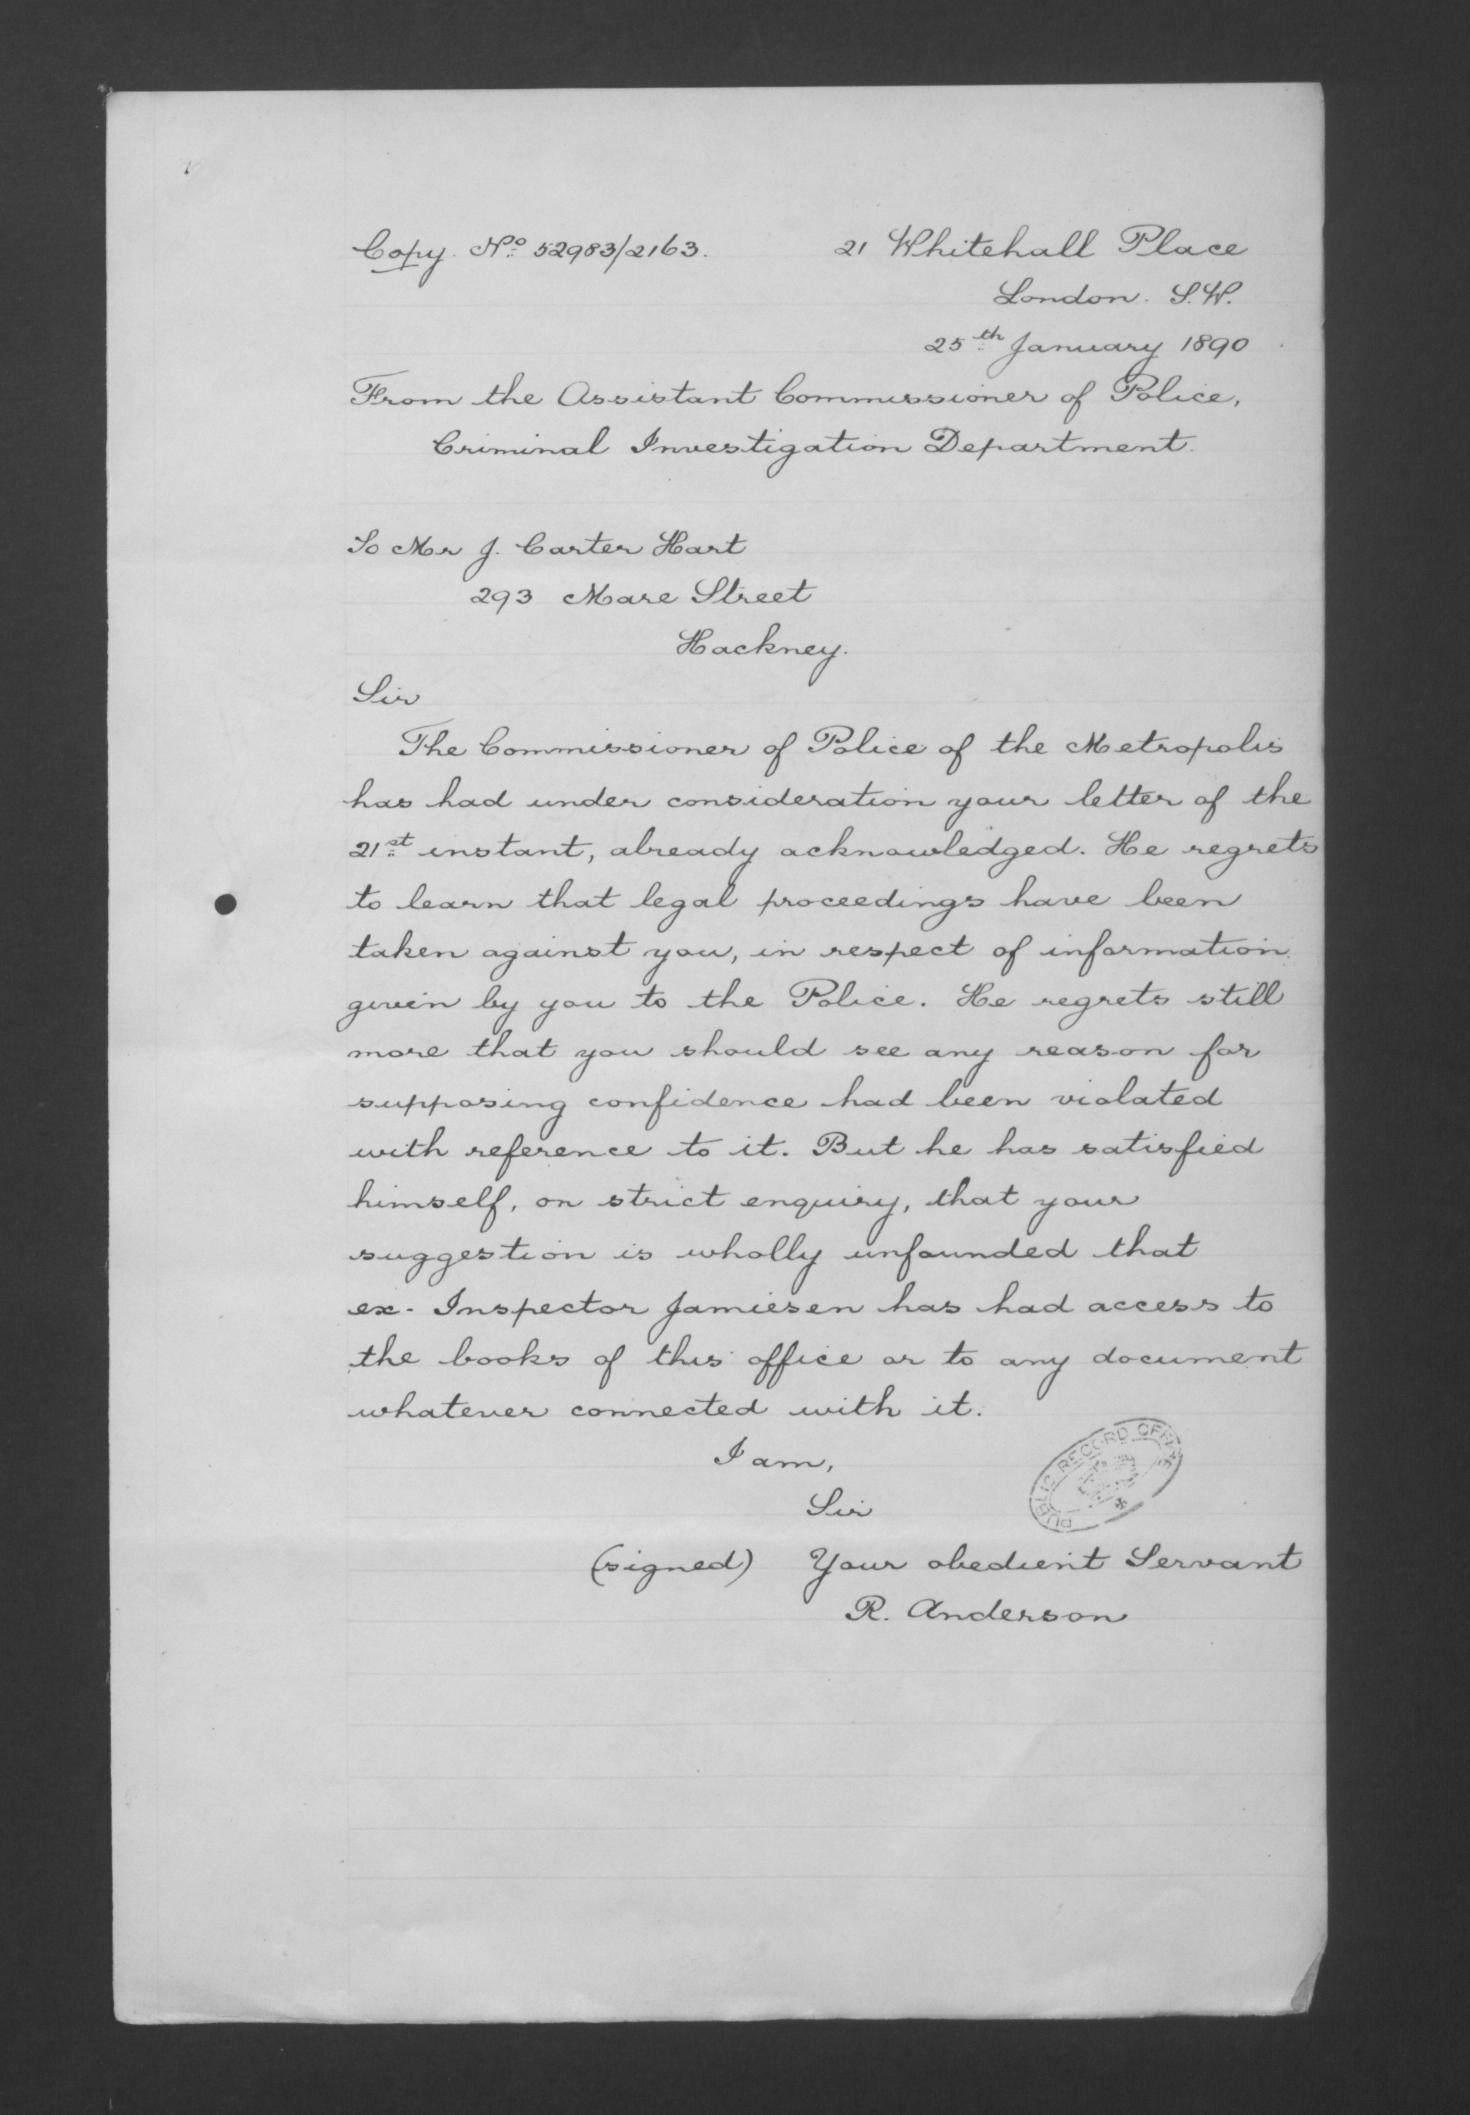 Copy. No. 52983/2163.
21 Whitehall Place
London. S.W.
25th January 1890
From the Assistant Commissioner of Police,
Criminal Investigation Department.
To Mr J. Carter Hart
293 Mare Street
Hackney.
Sir
The Commissioner of Police of the Metropolis
has had under consideration your letter of the
21st instant, already acknowledged. He regrets
to learn that legal proceedings have been
taken against you, in respect of information
given by you to the Police. He regrets still
more that you should see any reason for
supposing confidence had been violated
with reference to it. But he has satisfied
himself, on strict enquiry, that your
suggestion is wholly unfounded that
ex-Inspector Jamiesen has had access to
the books of this office or to any document
whatever connected with it.
I am,
Sir
(signed) Your obedient Servant
R. Anderson
PUBLIC RECORD OFFICE